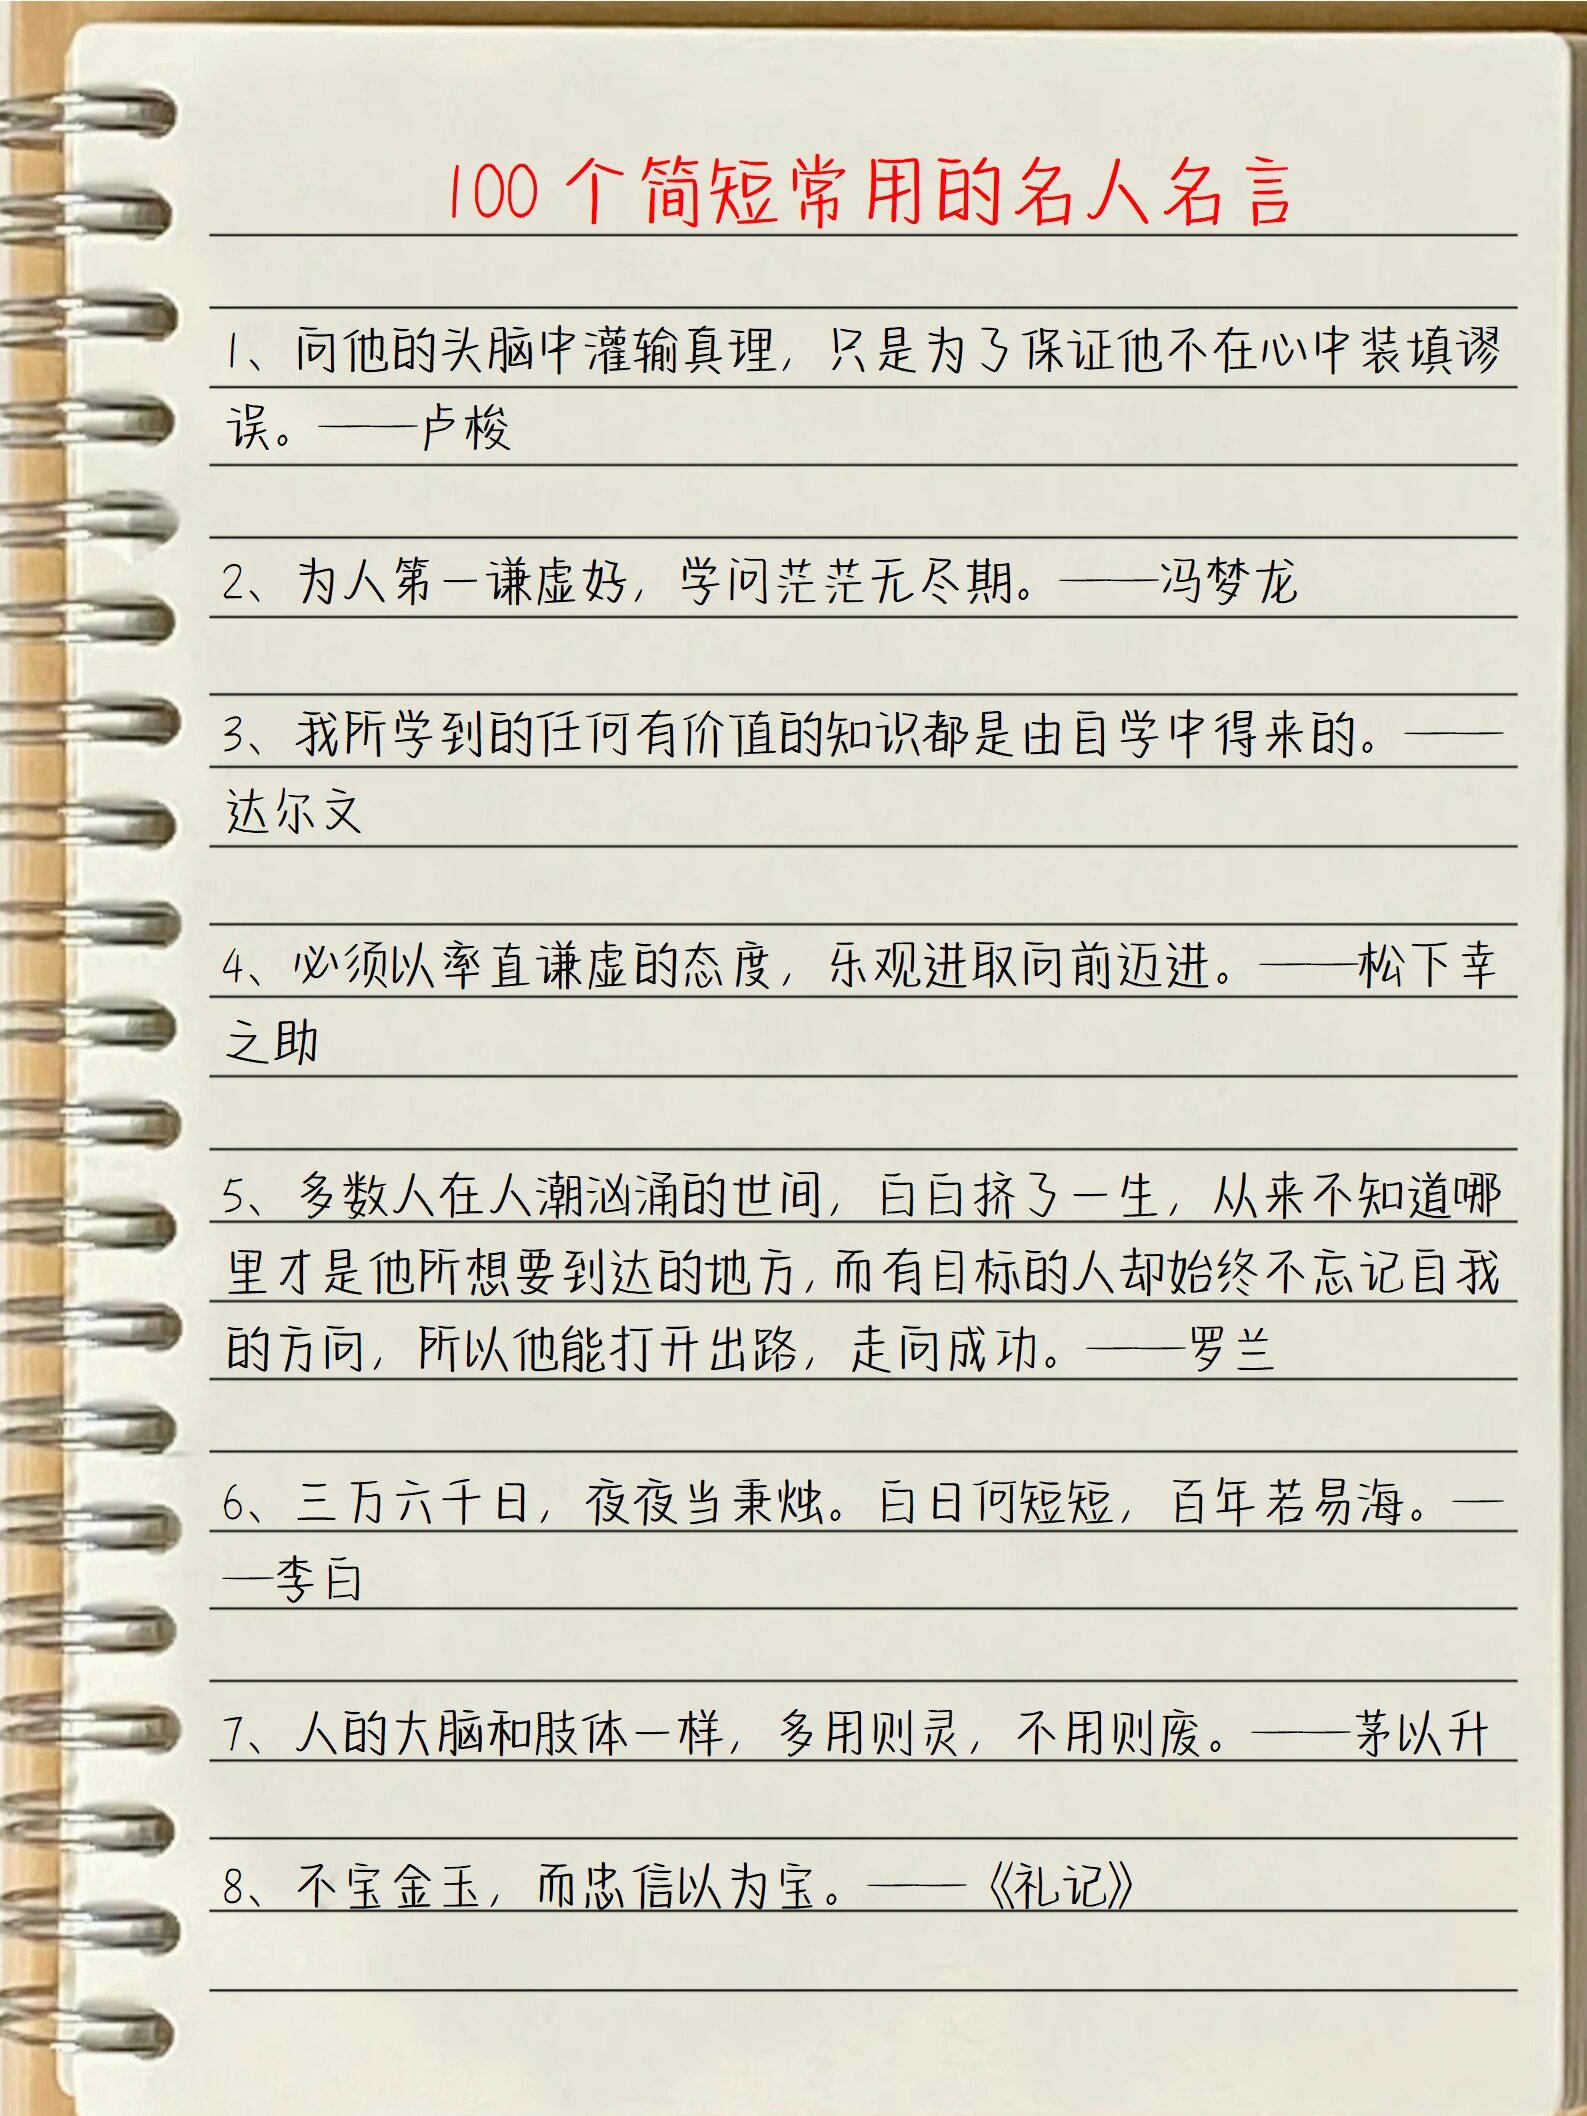 100个简短常用的名人名言
1、向他的头脑中灌输真理，只是为了保证他不在心中装填谬
误。——卢梭
2、为人第一谦虚好，学问茫茫无尽期。——冯梦龙
3、我所学到的任何有价值的知识都是由自学中得来的。——
达尔文
4、必须以率直谦虚的态度，乐观进取向前迈进。——松下幸
之助
5、多数人在人潮汹涌的世间，白白挤了一生，从来不知道哪
里才是他所想要到达的地方,而有目标的人却始终不忘记自我
的方向，所以他能打开出路，走向成功。——罗兰
6、三万六千日，夜夜当秉烛。白日何短短，百年若易海。—
—李白
7、人的大脑和肢体一样，多用则灵，不用则废。——茅以升
8、不宝金玉，而忠信以为宝。——《礼记》